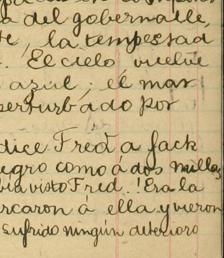 a del gobernalle,
te, la tempestad
. El cielo vuelve
azul; el mar
perturbado por
dice Fred á Jack
negro como á dos millas
bia visto Fred. ! Era la
rcaron á ella y vieron
sufrido ningún deterioro